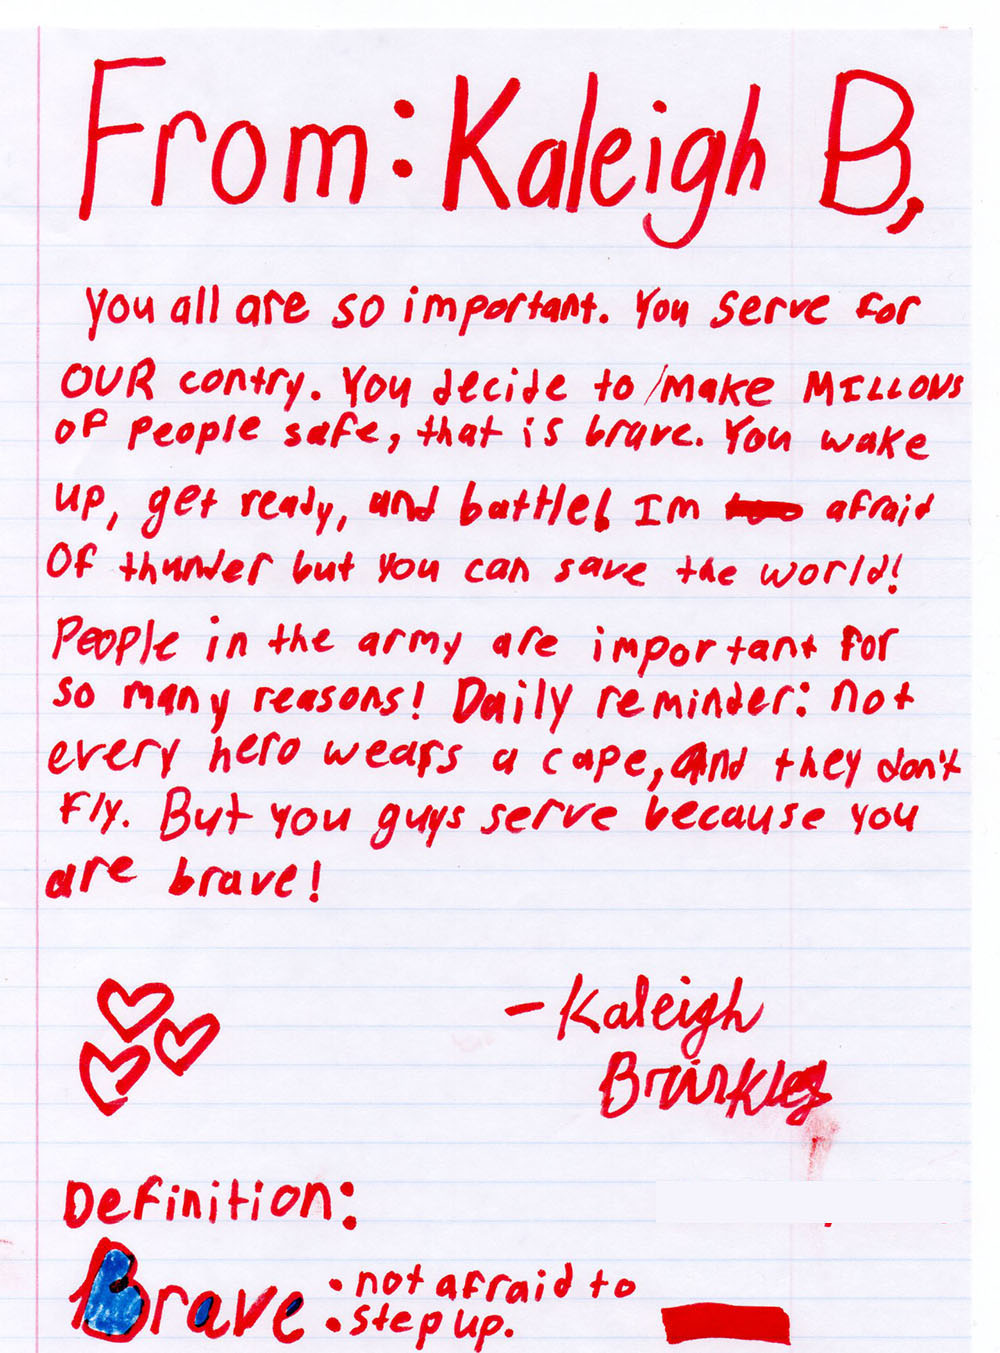 From: Kaleigh B,
You all are so important. You serve for
OUR contry. You decide to make MILLONS
of people safe, that is brave. You wake
up, get ready, and battle! Im afraid
Of thunder but you can save the world!
People in the army are important for
so many reasons! Daily reminder: not
every hero wears a cape, and they don't
fly. But you guys serve because you
are brave!
- Kaleigh
Brinkley
Definition:
Brave : not afraid to
step up.